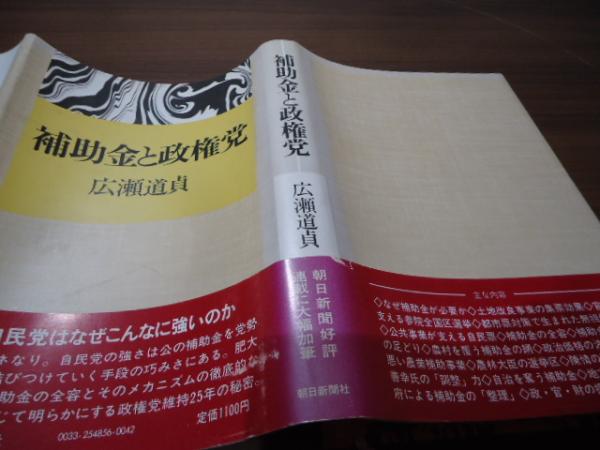 補助金と政権党
広瀬道貞
自民党はなぜこんなに強いのか
ネなり。自民党の強さは公の補助金を党勢
結びつけていく手段の巧みさにある。肥大
助金の全容とそのメカニズムの徹底的な
じて明らかにする政権党維持25年の秘密。
定価1100円
0033-254856-0042
補助金と政権党
広瀬道貞
朝日新聞好評
連載に大幅加筆
朝日新聞社
主な内容
◇なぜ補助金が必要か◇土地改良事業の集票効果◇
支える参院全国区選挙◇都市農対策で生まれた
◇公共事業が支える自民票◇補助金の
のたどり◇農村を覆う補助金の
悪い農業補助事業◇農林大臣の選挙区◇陳情の
善幸氏の「調整」力◇自治を奪う補助金◇
府による補助金の「整理」◇政・官・財の